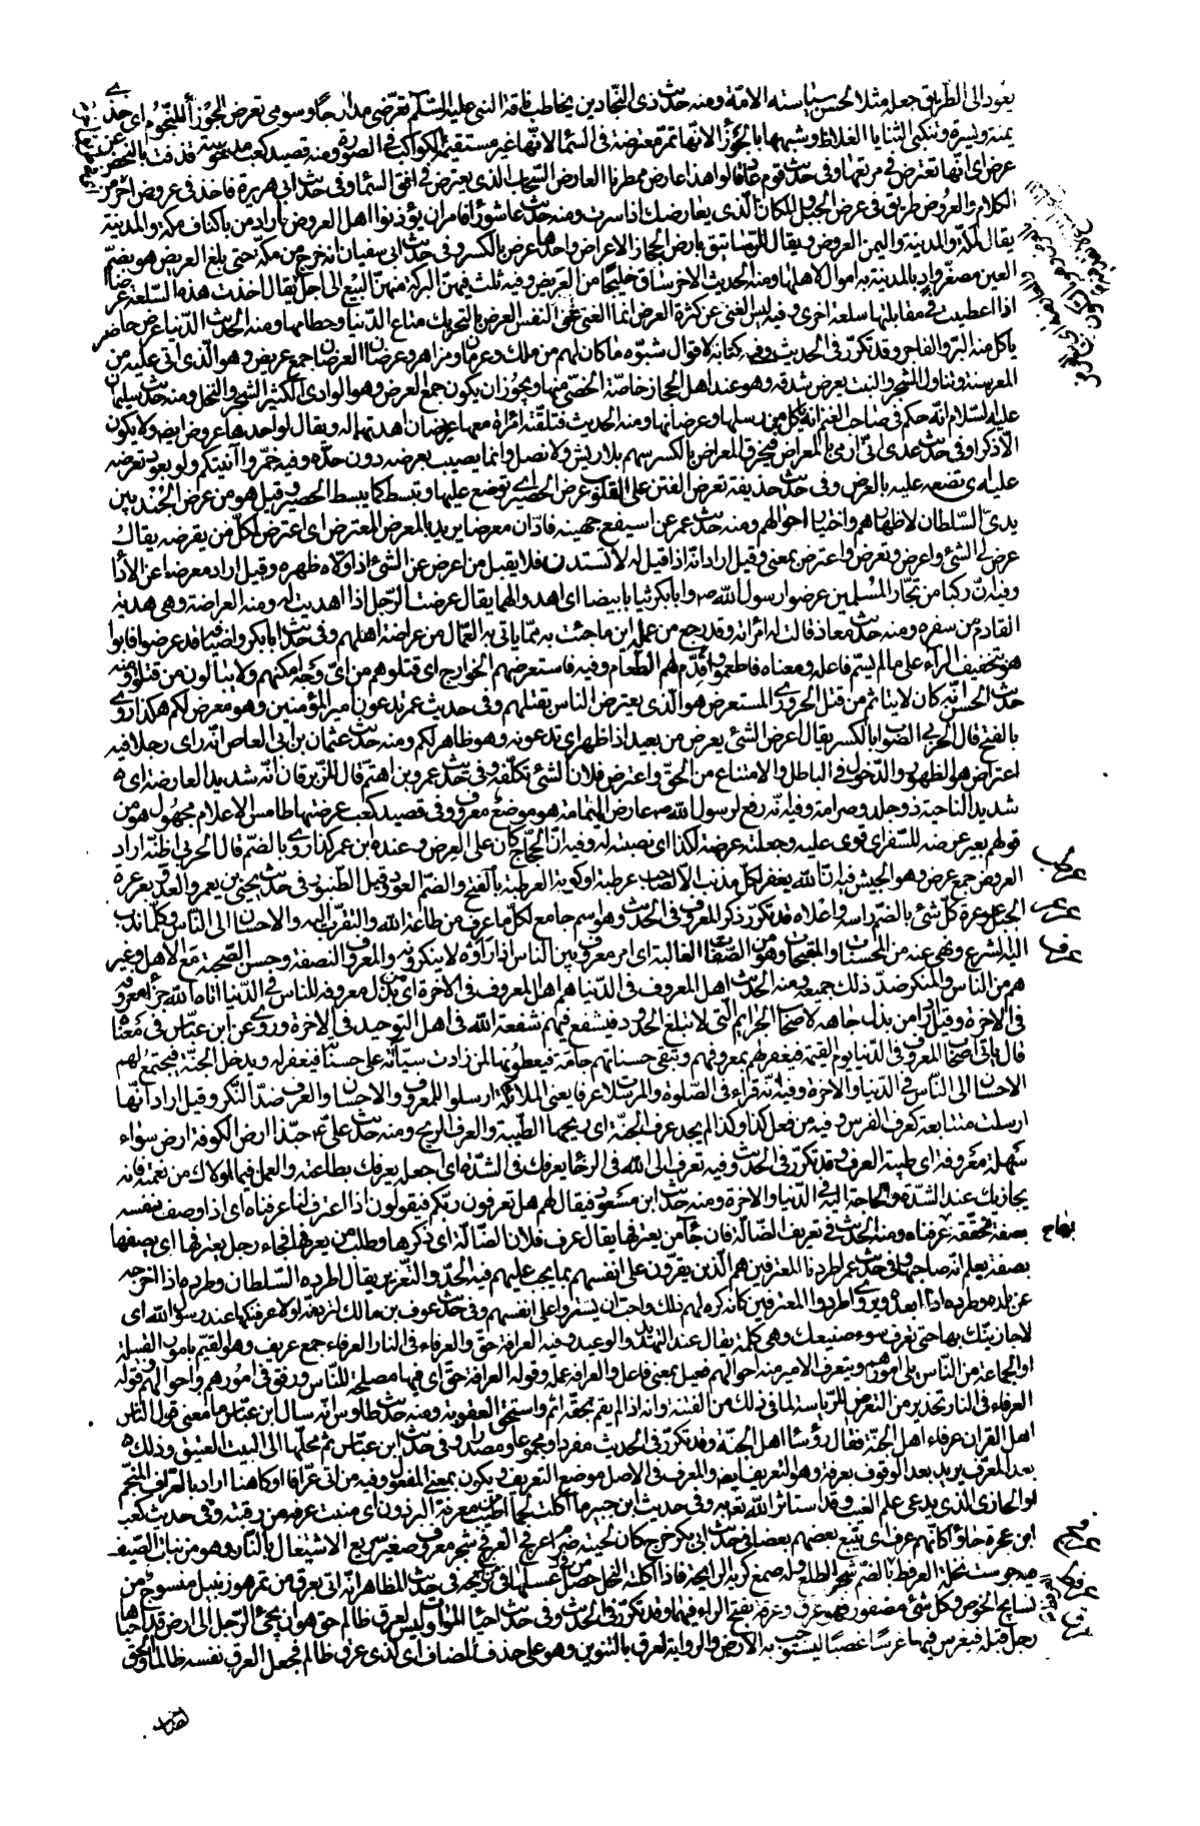 يعود الى الطريق جعله مثلا لحسن سياسته الامة ومنه حديث ذى النجادين يخاطب ناقة النبى عليه السلم تعرضى مدارجا وسومى تعرض الجوزاء للنجوم اى خذى
يمنة ويسرة وتنكبى الثنايا الغلاظ وشبهها بالجوزاء لانها تمر معترضة فى السماء لانها غير مستقيمة الكواكب فى الصورة ومنه قصيد كعب مدخوسة قذفت بالنحض عن
عرض اى انها تعترض فى مرتعها وفى حديث قوم عاد قالوا هذا عارض ممطرنا العارض السحاب الذى يعترض فى افق السماء وفى حديث ابى هريرة فاخذ فى عروض اخر من
الكلام والعروض طريق فى عرض الجبل والمكان الذى يعارضك اذا سرت ومنه حديث عاشوراء فامر ان يؤذنوا اهل العروض اراد من باكناف مكة والمدينة
يقال لمكة والمدينة واليمن العروض ويقال للرساتيق بارض الحجاز الاعراض واحدها عرض بالكسر وفى حديث ابى سفيان انه خرج من مكة حتى بلغ العريض هو بضم
العين مصغر واد بالمدينة به اموال لاهلها ومنه الحديث الاخر ساق خليجا من العريض وفيه ثلث فيهن البركة منهن البيع الى اجل يقال اخذت هذه السلعة عرضا
اذا اعطيت فى مقابلتها سلعة اخرى وفيه ليس الغنى عن كثرة العرض انما الغنى غنى النفس العرض بالتحريك متاع الدنيا وحطامها ومنه الحديث الدنيا عرض حاضر
ياكل منه البر والفاجر وقد تكرر فى الحديث وفى كتابه لاقوال شبوة ما كان لهم من ملك وعرمان ومزاهر وعرضان العرضان جمع عريض وهو الذى اتى عليه من
المعز سنة وتناول الشجر والنبت بعرض شدقه وهو عند اهل الحجاز خاصة الخصى منها ويجوز ان يكون جمع العرض وهو الوادى الكثير الشجر والنخل ومنه حديث سليمان
عليه السلام انه حكم فى صاحب الغنم انه ياكل من رسلها وعرضانها ومنه الحديث فتلقته امراة معها عريضان اهدتهما له ويقال لواحدها عروض ايضا ولا يكون
الا ذكرا وفى حديث عدى انى ارمى بالمعراض فيخرق المعراض بالكسر سهم بلا ريش ولا نصل وانما يصيب بعرضه دون حده وفيه خمروا آنيتكم ولو بعود تعرضه
عليه اى تضعه عليه بالعرض وفى حديث حذيفة تعرض الفتن على القلوب عرض الحصير اى توضع عليها وتبسط كما يبسط الحصير وقيل هو من عرض الجند بين
يدى السلطان لاظهارهم واختبار احوالهم ومنه حديث عمر عن اسيفع جهينة فادان معرضا يريد بالمعرض المعترض اى اعترض لكل من يقرضه يقال
عرض لى الشئ واعرض وتعرض واعترض بمعنى وقيل اراد انه اذا قيل له لا تستدن فلا يقبل من اعرض عن الشئ اذا ولاه ظهره وقيل اراد معرضا عن الاداء
وفيه ان ركبا من تجار المسلمين عرضوا رسول الله ص وابا بكر ثيابا بيضا اى اهدوا لهما يقال عرضت الرجل اذا اهديت له ومنه العراضة وهى هدية
القادم من سفره ومنه حديث معاذ قالت له امراته وقد رجع من عمله اين ما جئت به مما ياتى به العمال من عراضة اهلهم وفى حديث ابى بكر واضيافه قد عرضوا فابوا
هو بتخفيف الراء على ما لم يسم فاعله ومعناه فاطعموا وقدم لهم الطعام وفيه فاستعرضهم الخوارج اى قتلوهم من اى وجه امكنهم ولا يبالون من قتلوا ومنه
حديث الحسن انه كان لا يتاثم من قتل الحرورى المستعرض هو الذى يعترض الناس بقتلهم وفى حديث عمر تدعون امير المؤمنين وهو معرض لكم هكذا روى
بالفتح قال الحربى الصواب بالكسر يقال اعرض الشئ يعرض من بعيد اذا ظهر اى تدعونه وهو ظاهر لكم ومنه حديث عثمان بن ابى العاص انه راى رجلا فيه
اعتراض هو الظهور والدخول فى الباطل والامتناع من الحق واعترض فلان الشئ تكلفه وفى حديث عمرو بن اهتم قال للزبرقان انه شديد العارضة اى
شديد الناحية ذو جلد وصرامة وفيه انه رفع لرسول الله ص عارض اليمامة هو موضع معروف وفى قصيد كعب عرضتها طامس الاعلام مجهول هو من
قولهم بعير عرضة للسفر اى قوى عليه وجعلته عرضة لكذا اى نصبته له وفيه ان الحجاج كان على العرض وعنده ابن عمر كذا روى بالضم قال الحربى اظنه اراد
العروض جمع عرض وهو الجيش فيه ان الله يغفر لكل مذنب الا لصاحب عرطبة او كوبة العرطبة بالفتح والضم العود وقيل الطنبور فى حديث يحيى بن يعمر والعدو بعرعرة
الجبل عرعرة كل شئ بالضم راسه واعلاه قد تكرر ذكر المعروف فى الحديث وهو اسم جامع لكل ما عرف من طاعة الله والتقرب اليه والاحسان الى الناس وكل ما ندب
اليه الشرع ونهى عنه من المحسنات والمقبحات وهو من الصفات الغالبة اى امر معروف بين الناس اذا راوه لا ينكرونه والمعروف النصفة وحسن الصحبة مع الاهل وغير
هم من الناس والمنكر ضد ذلك جميعه ومنه الحديث اهل المعروف فى الدنيا هم اهل المعروف فى الاخرة اى من بذل معروفه للناس فى الدنيا اتاه الله جزاء معروفه
فى الاخرة وقيل اراد من بذل جاهه لاصحاب الجرايم التى لا تبلغ الحدود فيشفع فيهم شفعه الله فى اهل التوحيد فى الاخرة وروى عن ابن عباس فى معناه
قال ياتى اصحاب المعروف فى الدنيا يوم القيمة فيغفر لهم بمعروفهم وتبقى حسناتهم جامة فيعطونها لمن زادت سيآته على حسناته فيغفر له ويدخل الجنة فيجتمع لهم
الاحسان الى الناس فى الدنيا والاخرة وفيه انه قراء فى الصلوة والمرسلات عرفا يعنى الملائكة ارسلوا للمعروف والاحسان والعرف ضد النكر وقيل اراد انها
ارسلت متتابعة كعرف الفرس وفيه من فعل كذا وكذا لم يجد عرف الجنة اى ريحها الطيبة والعرف الريح ومنه حديث على ع حبذا ارض الكوفة ارض سواء
سهلة معروفة اى طيبة العرف وقد تكرر فى الحديث وفيه تعرف الى الله فى الرخاء يعرفك فى الشدة اى اجعله يعرفك بطاعته والعمل فيما اولاك من نعمته فانه
يجازيك عند الشدة والحاجة اليه فى الدنيا والاخرة ومنه حديث ابن مسعود فيقال لهم هل تعرفون ربكم فيقولون اذا اعترف لنا عرفناه اى اذا وصف نفسه
بصفة تحققه عرفناه ومنه الحديث فى تعريف الضالة فان جاء من يعترفها يقال عرف فلان الضالة اى ذكرها وطلب من يعرفها فجاء رجل يعترفها اى يصفها
بصفة يعلم انه صاحبها وفى حديث عمر اطردنا المعترفين هم الذين يقرون على انفسهم بما يجب عليهم فيه الحد والتعزير يقال اطرده السلطان وطرده اذا اخرجه
عن بلده وطرده اذا ابعده ويروى اطردوا المعترفين كانه كره لهم ذلك واحب ان يستروا على انفسهم وفى حديث عوف بن مالك لتردنه او لاعرفنكها عند رسول الله اى
لاجازينك بها حتى تعرف سوء صنيعك وهى كلمة يقال عند التهديد والوعيد وفيه العرافة حق والعرفاء فى النار العرفاء جمع عريف وهو القيم بامور القبيلة
او الجماعة من الناس يلى امورهم ويتعرف الامير منه احوالهم فعيل بمعنى فاعل والعرافة عمله وقوله العرافة حق اى فيها مصلحة للناس ورفق فى امورهم واحوالهم وقوله
العرفاء فى النار تحذير من التعرض للرياسة لما فى ذلك من الفتنة وانه اذا لم يقم بحقه اثم واستحق العقوبة ومنه حديث طاوس انه سال ابن عباس ما معنى قول الناس
اهل القران عرفاء اهل الجنة فقال رؤساء اهل الجنة وقد تكرر فى الحديث مفردا ومجموعا ومصدرا وفى حديث ابن عباس ثم محلها الى البيت العتيق وذلك
بعد المعرف يريد بعد الوقوف بعرفة وهو التعريف ايضا والمعرف فى الاصل موضع التعريف ويكون بمعنى المفعول وفيه من اتى عرافا او كاهنا اراد بالعراف المنجم
او الحازى الذى يدعى علم الغيب وقد استاثر الله تع به وفى حديث ابن جبير ما اكلت لحما اطيب من معرفة البرذون اى منبت عرفه من رقبته وفى حديث كعب
ابن عجرة جاؤا كانهم عرف اى يتبع بعضهم بعضا فى حديث ابى بكر خرج كان لحيته ضرام عرفج العرفج شجر معروف صغير سريع الاشتعال بالنار وهو من نبات الصيف
فيه جرست نحله العرفط بالضم شجر الطلح وله صمغ كريه الرايحة فاذا اكلته النحل حصل فى عسلها من ريحه فى حديث المظاهر انه اتى بعرق من تمر هو زنبيل منسوج من
نسايج الخوص وكل شئ مضفور فهو عرق وعرقة بفتح الراء فيهما وقد تكرر فى الحديث وفى حديث احياء الموات وليس لعرق ظالم حق هو ان يجئ الرجل الى ارض قد احياها
رجل قبله فيغرس فيها غرسا غصبا ليستوجب به الارض والرواية لعرق بالتنوين وهو على حذف المضاف اى لذى عرق ظالم فجعل العرق نفسه ظالما والحق
عرطب
عرعر
عرف
عرفج
عرفط
عرق